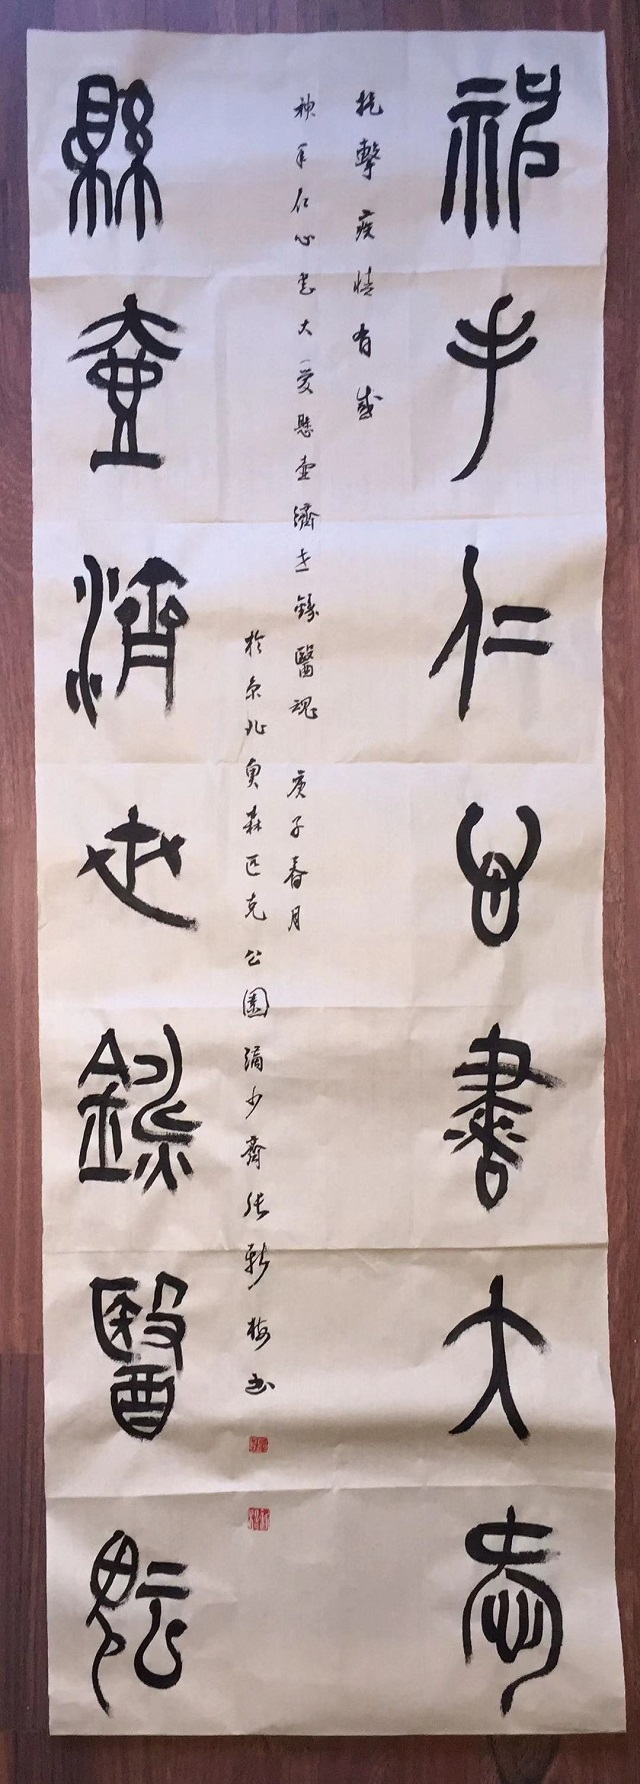 神手仁心書大愛
抗擊疫情有感
神手仁心書大愛懸壺濟世錄醫魂 庚子春月
於京北奧森匹克公園齋張新梅書
縣壺濟世錄醫魂